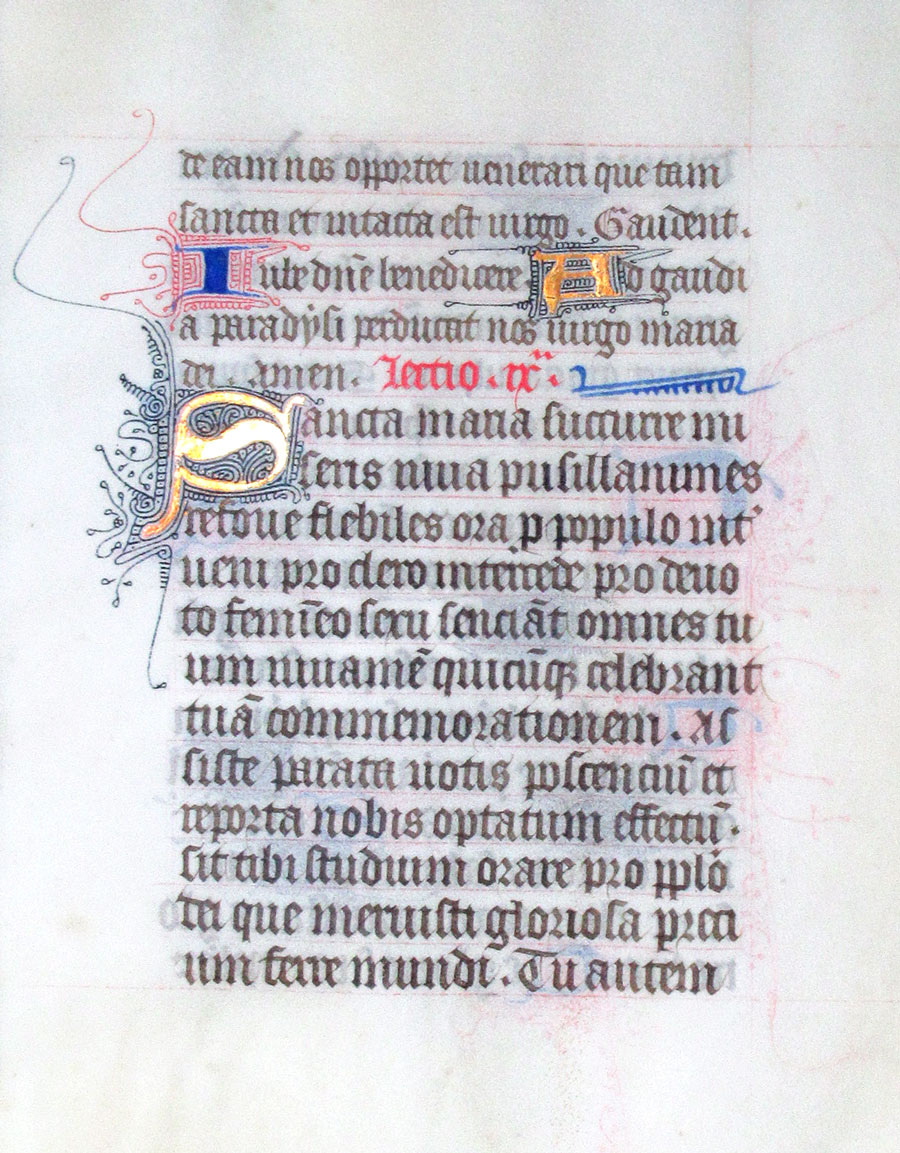 de eam nos opportet uenerari que tam
sancta et intacta est uirgo. Gaudent.
Iube dn̄e benedicere Ad gaudi
a paradÿsi perducat nos uirgo maria
dei. Amen. Lectio. ix.ᵃ
Sancta maria succurre mi
seris iuua pusillanimes
refoue flebiles ora ꝓ populo int᾽
ueni pro clero intercede pro deuo
to femīeo sexu senciāt omnes tu
um iuuamē quicūqꝫ celebrant
tuā commemorationem. As
siste parata uotis poscenciū et
reporta nobis optatum effectū.
sit tibi studium orare pro pplo
dei que meruisti gloriosa preci
um ferre mundi. Tu autem